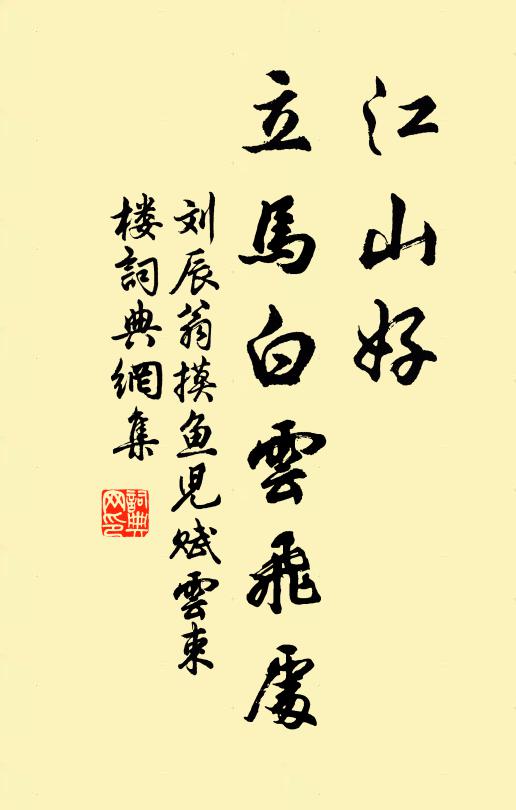 江山好
立馬白雲飛處
刘辰翁摸鱼児赋雲束
楼詞典網集
詞典
网印